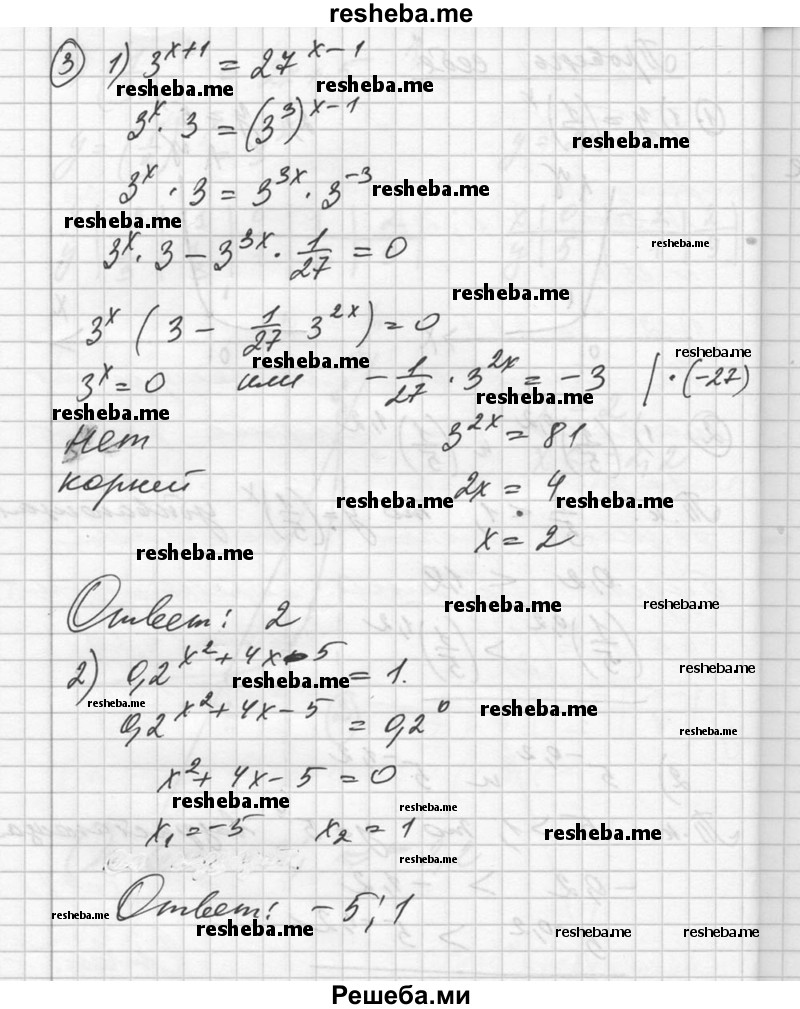 resheba.me
③ 1) 3^{x+1} = 27^{x-1}
resheba.me resheba.me
3^x · 3 = (3^3)^{x-1}
resheba.me
3^x · 3 = 3^{3x} · 3^{-3} resheba.me
resheba.me
3^x · 3 - 3^{3x} · 1/27 = 0 resheba.me
resheba.me
3^x (3 - 1/27 3^{2x}) = 0
resheba.me resheba.me
3^x = 0 или -1/27 · 3^{2x} = -3 | · (-27)
resheba.me resheba.me
нет 3^{2x} = 81
корней 2x = 4
resheba.me resheba.me
resheba.me x = 2
resheba.me resheba.me
Ответ: 2
2) 0,2^{x^2+4x-5} = 1.
resheba.me resheba.me
resheba.me
0,2^{x^2+4x-5} = 0,2^0 resheba.me
resheba.me
x^2 + 4x - 5 = 0
resheba.me resheba.me
x_1 = -5 x_2 = 1 resheba.me
resheba.me
Ответ: -5; 1
resheba.me resheba.me resheba.me resheba.me
Решеба.ми